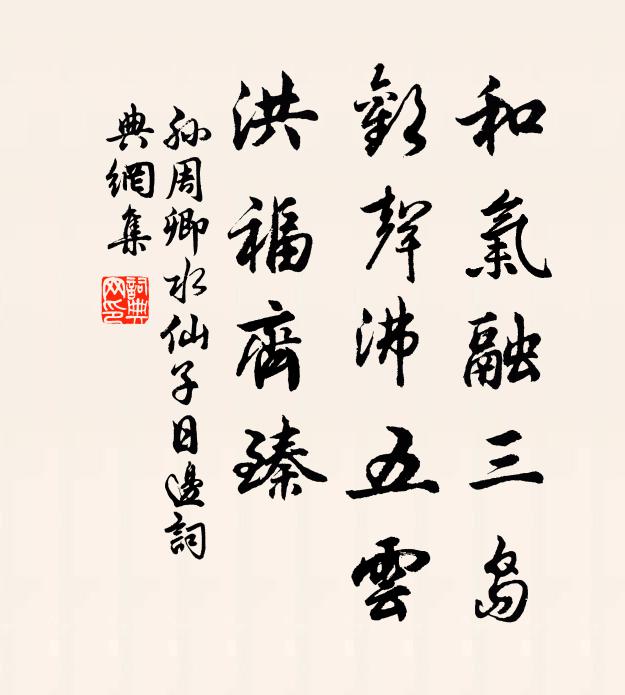 和氣融三島
歡聲沸五雲
洪福齊臻
孫周卿水仙子日邊詞
典網集
詞典網印